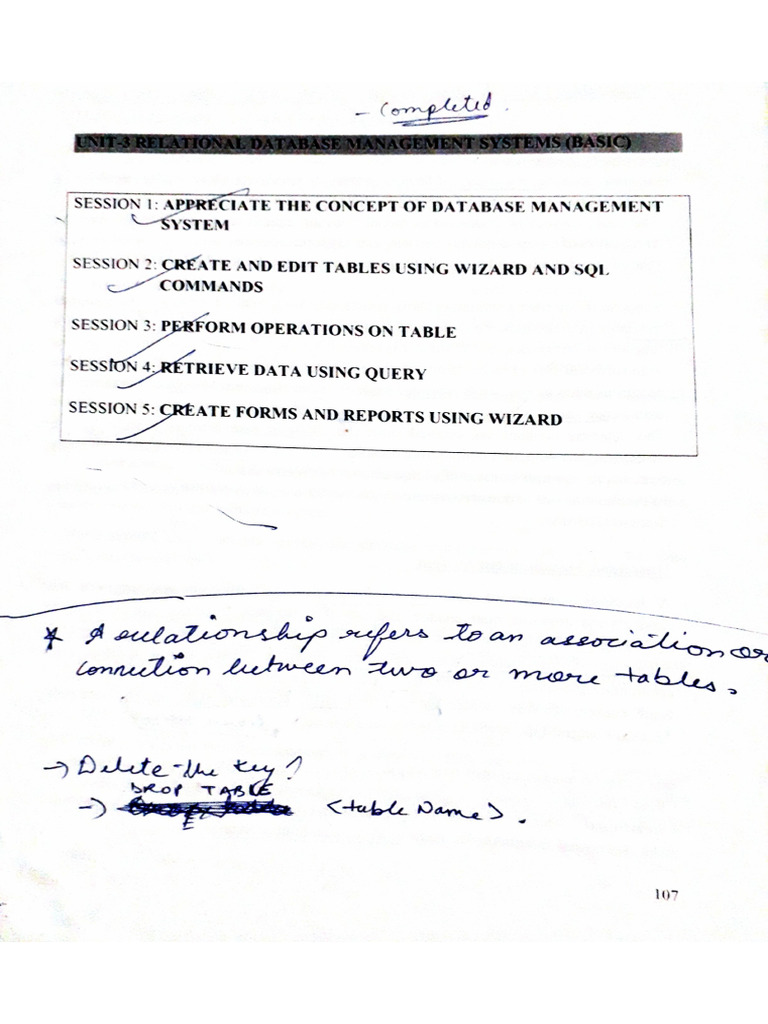 - Completed.
UNIT-3 RELATIONAL DATABASE MANAGEMENT SYSTEMS (BASIC)
SESSION 1: APPRECIATE THE CONCEPT OF DATABASE MANAGEMENT
SYSTEM
SESSION 2: CREATE AND EDIT TABLES USING WIZARD AND SQL
COMMANDS
SESSION 3: PERFORM OPERATIONS ON TABLE
SESSION 4: RETRIEVE DATA USING QUERY
SESSION 5: CREATE FORMS AND REPORTS USING WIZARD
* A relationship refers to an association or
connection between two or more tables.
→ Delete the key?
DROP TABLE
→ <table Name>.
107